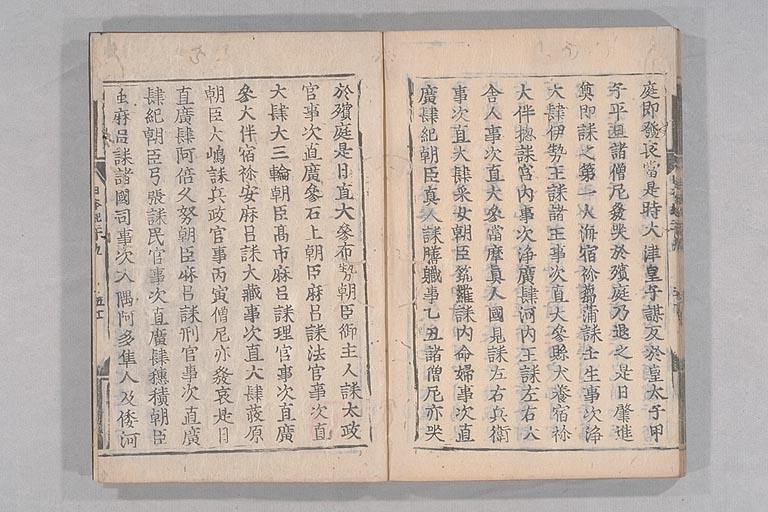 庭即發哀當是時大津皇子謀反於皇太子甲
子平旦諸僧尼發哭於殯庭乃退之是日肇進
奠即誄之第一大海宿祢蒭蒲誄壬生事次浄
大肆伊勢王誄諸王事次直大參縣犬養宿祢
大伴誄宮内事次浄廣肆河内王誄左右大
舎人事次直大參當摩真人國見誄左右兵衛
事次直大肆采女朝臣筑羅誄内命婦事次直
廣肆紀朝臣真人誄膳職事乙丑諸僧尼亦哭
於殯庭是日直大參布勢朝臣御主人誄太政
官事次直廣參石上朝臣麻呂誄法官事次直
大肆大三輪朝臣髙市麻呂誄理官事次直廣
參大伴宿祢安麻呂誄大藏事次直大肆藤原
朝臣大嶋誄兵政官事丙寅僧尼亦發哀是日
直廣肆阿倍久努朝臣麻呂誄刑官事次直廣
肆紀朝臣弓張誄民官事次直廣肆穗積朝臣
虫麻呂誄諸國司事次大隅阿多隼人及倭河